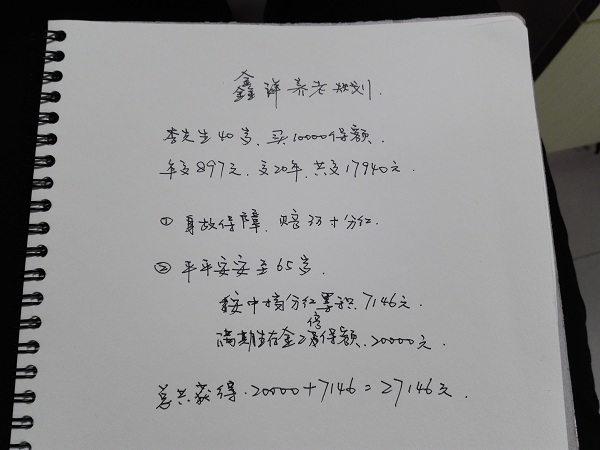 鑫祥养老规划.
李先生40岁.买10000保额.
年交897元.交20年.共交17940元.
① 身故保障.赔3万+分红.
② 平平安安至65岁.
按中档分红累积.7146元.
满期生存金2倍保额.20000元.
总共获得.20000+7146=27146元.